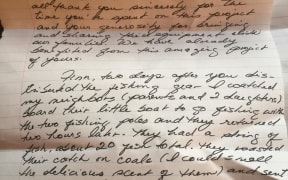 all thank you sincerely for the
time you've spent on this project
and your generosity for bringing
and sharing the equipment with
our families. We have already
benefited from this amazing project
of yours.
Finn, two days after you dis-
tributed the fishing gear I watched
my neighbors (parents and 2 daughters)
board their little boat to go fishing with
the two fishing poles and they returned
two hours later. They had a string of
fish, about 20 fish total. They roasted
their catch on coals (I could smell
the delicious scent of them) and sent